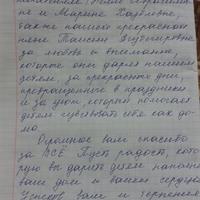 не и Марине Хаут
также нашей прекрасной
няне Таисии
за любовь и внимание,
которые они дарят нашим
детям, за прекрасные дни,
превращенные в праздники
и за уют, который помогает
детям чувствовать себя как до-
ма.
Огромное вам спасибо
за ВСЁ. Пусть радость, кото-
рую вы дарите детям наполня
ваш дом и ваши сердца
Успехов вам и терпения